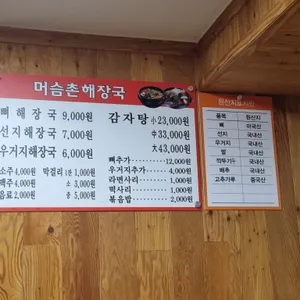 머슴촌해장국
뼈해장국 9,000원
선지해장국 7,000원
우거지해장국 6,000원
소주 4,000원 막걸리 1잔 1,000원
맥주 4,000원 소 3,000원
음료 2,000원 총 5,000원
감자탕 小 23,000원
中 33,000원
大 43,000원
뼈추가 12,000원
우거지추가 4,000원
라면사리 1,000원
떡사리 1,000원
볶음밥 2,000원
원산지표시판
품목 원산지
뼈 미국산
선지 국내산
우거지 국내산
쌀 국내산
깍두기 국내산
배추 국내산
고추가루 중국산